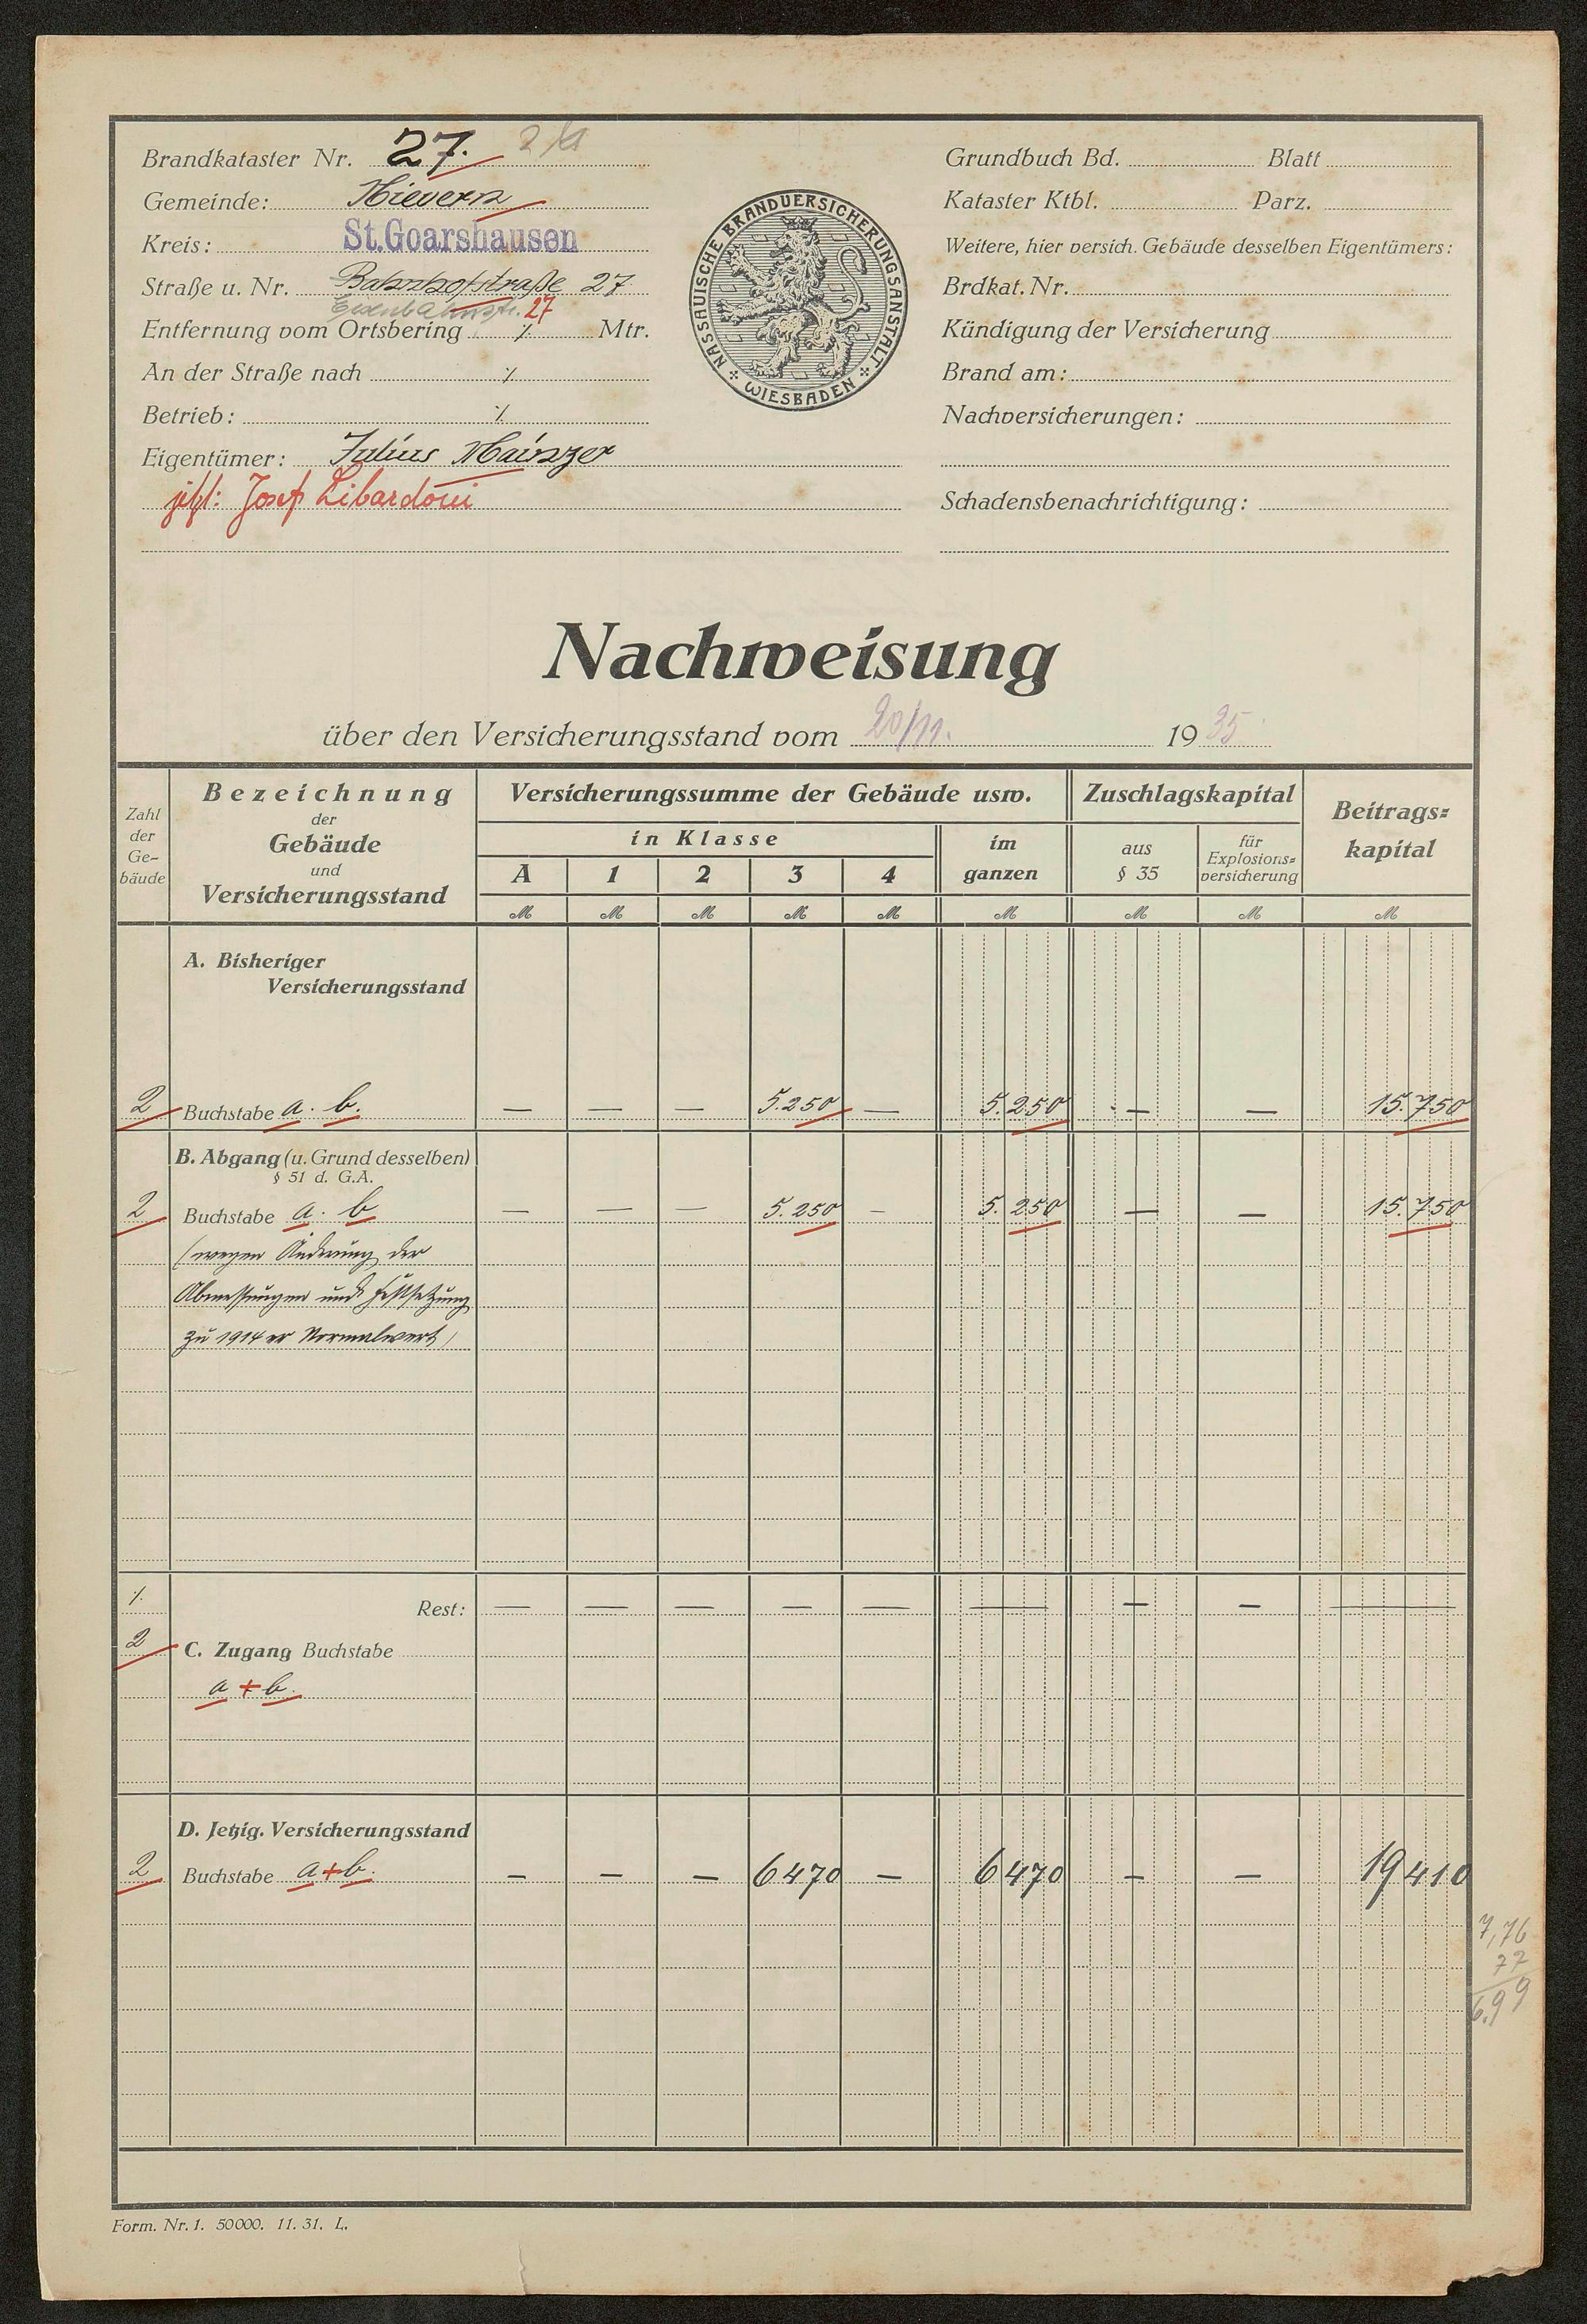 Brandkataster Nr. 27.
Gemeinde: Nievern
Kreis: St. Goarshausen
Straße u. Nr. Bahnhofstraße 27
Eisenbahnstr. 27
Entfernung vom Ortsbering ./. Mtr.
An der Straße nach ./.
Betrieb: ./.
Eigentümer: Julius Mainzer
jetzt: Josef Libardoni
NASSAUISCHE BRANDVERSICHERUNGSANSTALT
WIESBADEN
Grundbuch Bd. Blatt
Kataster Ktbl. Parz.
Weitere, hier versich. Gebäude desselben Eigentümers:
Brdkat. Nr.
Kündigung der Versicherung
Brand am:
Nachversicherungen:
Schadensbenachrichtigung:
Nachweisung
über den Versicherungsstand vom 20/11. 1935
Zahl der Ge-bäude
Bezeichnung der Gebäude und Versicherungsstand
Versicherungssumme der Gebäude usw.
in Klasse
A 1 2 3 4
im ganzen
Zuschlagskapital
aus § 35
für Explosions=versicherung
Beitrags=kapital
M M M M M M M M M
A. Bisheriger
Versicherungsstand
2 Buchstabe a. b. — — — 5.250 — 5.250 — — 15.750
B. Abgang (u. Grund desselben)
§ 51 d. G.A.
2 Buchstabe a. b — — — 5.250 — 5.250 — — 15.750
(wegen Änderung der
Abmessungen und Festsetzung
zu 1914er Normalwert)
./. Rest: — — — — — — — — —
2 C. Zugang Buchstabe
a + b.
D. Jetzig. Versicherungsstand
2 Buchstabe a + b. — — — 6470 — 6470 — — 19410
7,76
77
6.99
Form. Nr. 1. 50000. 11. 31. L.